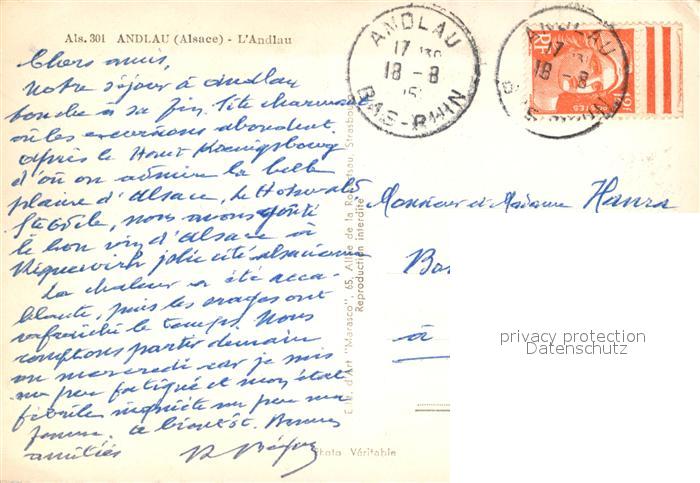 Als. 301 ANDLAU (Alsace) - L'Andlau
Chers amis,
Notre séjour à Andlau
touche à sa fin. Site charmant
où les excursions abondent.
après le Haut Koenigsbourg
d'où on admire la belle
plaine d'Alsace, le Hohwald
Ste Odile, nous avons goûté
le bon vin d'Alsace à
Riquewihr jolie cité alsacienne
La chaleur a été acca-
blante, puis les orages ont
rafraîchi le temps. Nous
comptons partir demain
ou mercredi car je suis
un peu fatigué et mon état
fébrile inquiète un peu ma
femme. à bientôt. Bonnes
amitiés
E. R. d'Art "Marasco", 65, Allée de la Robertsau, Strasbourg
Reproduction interdite
Photo Véritable
ANDLAU
17 30
18 - 8
BAS-RHIN
ANDLAU
17
18 - 8
RF
POSTES
Monsieur et Madame
à
privacy protection
Datenschutz